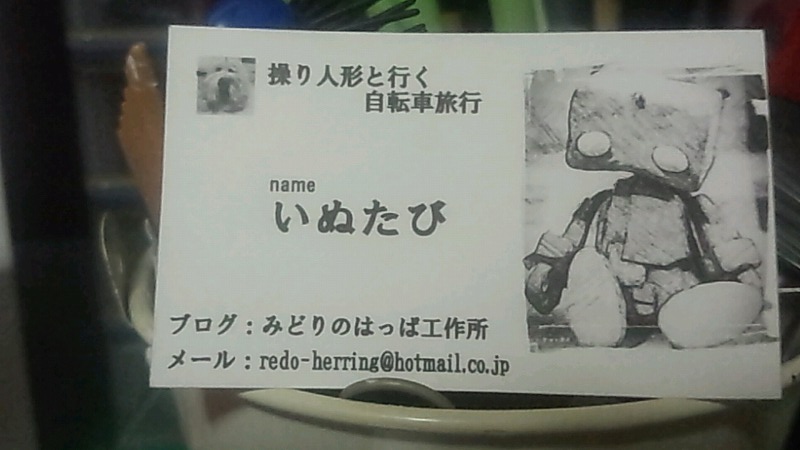 操り人形と行く
自転車旅行
name
いぬたび
ブログ：みどりのはっぱ工作所
メール：redo-herring@hotmail.co.jp